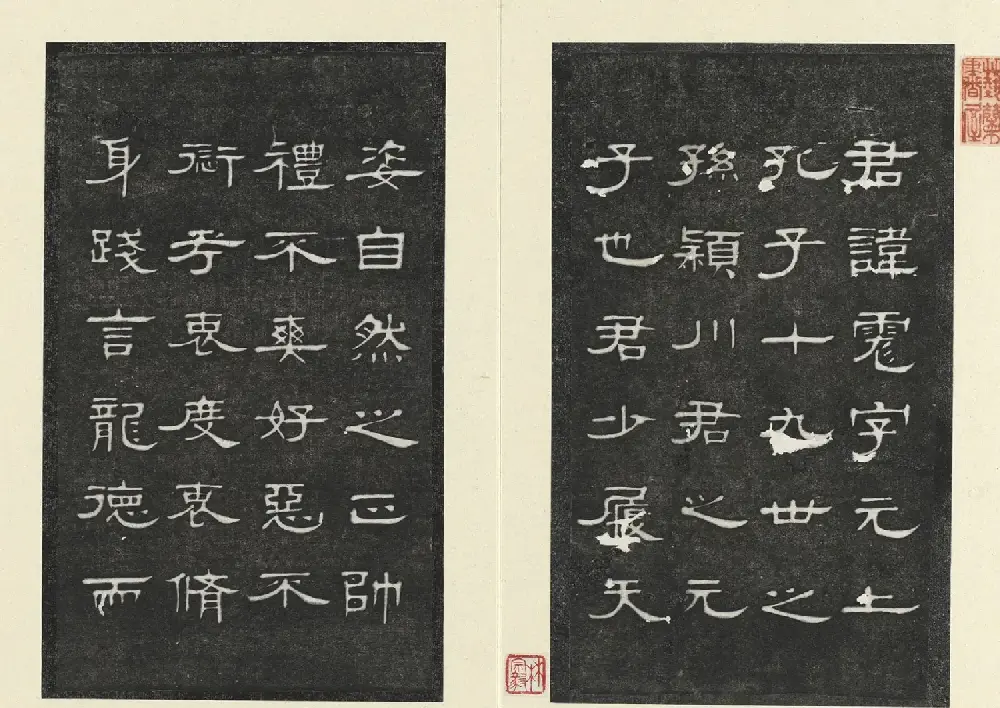 君諱彪字元上
孔子十九世之
孫潁川君之元
子也君少履天
姿自然之正帥
禮不爽好惡不
愆考衷度衷脩
身踐言龍德而
林宗毅